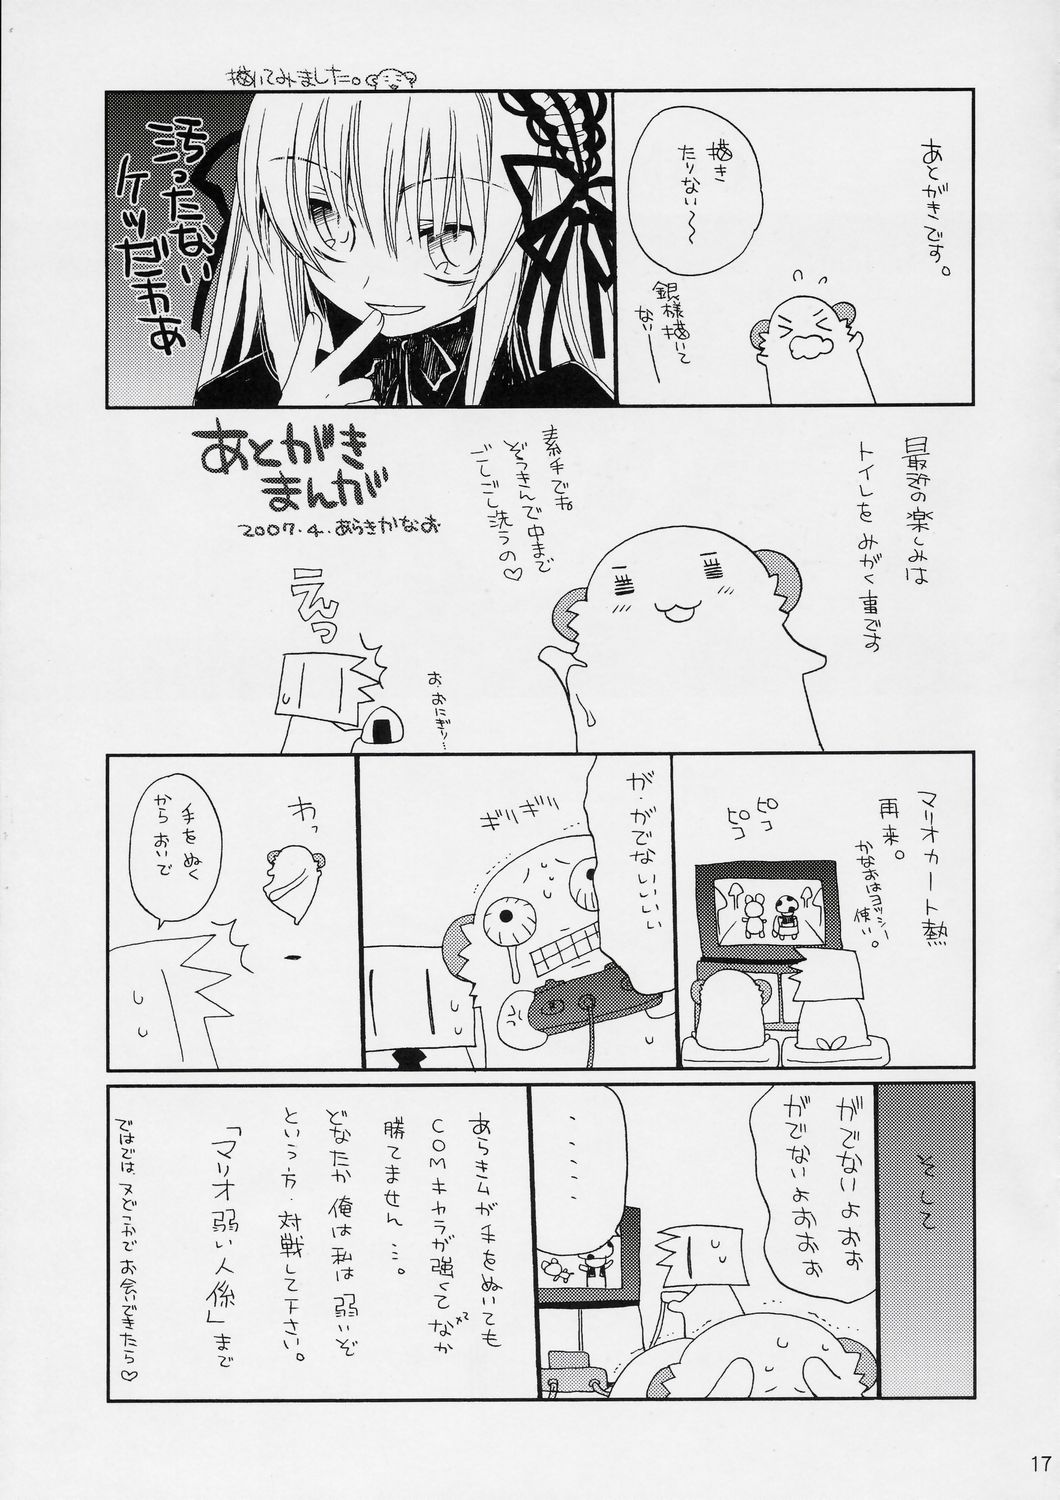 あとがきです。
描き
たりない〜〜
銀様描いて
ないーー
描いてみました。
汚ったない
ケツだわぁ
あとがき
まんが
2007.4.あらきかなお
最近の楽しみは
トイレをみがく事です
素手でね
ぞうきんで中まで
ごしごし洗うの♡
えんっ
お・おにぎり…
マリオカート熱
再来。
かなおはヨッシー
使い。
ピコ
ピコ
が・がでない
いいいい
ギリギリ
わっ
手をぬく
からおいで
そして
がでないよぉぉ
がでないよぉぉぉ
・・・・・
あらきムが手をぬいても
COMキャラが強くてなか×2
勝てません…。
どなたか俺は私は弱いぞ
という方・対戦して下さい。
「マリオ弱い人係」まで
ではでは、又どこかでお会いできたら♡
17